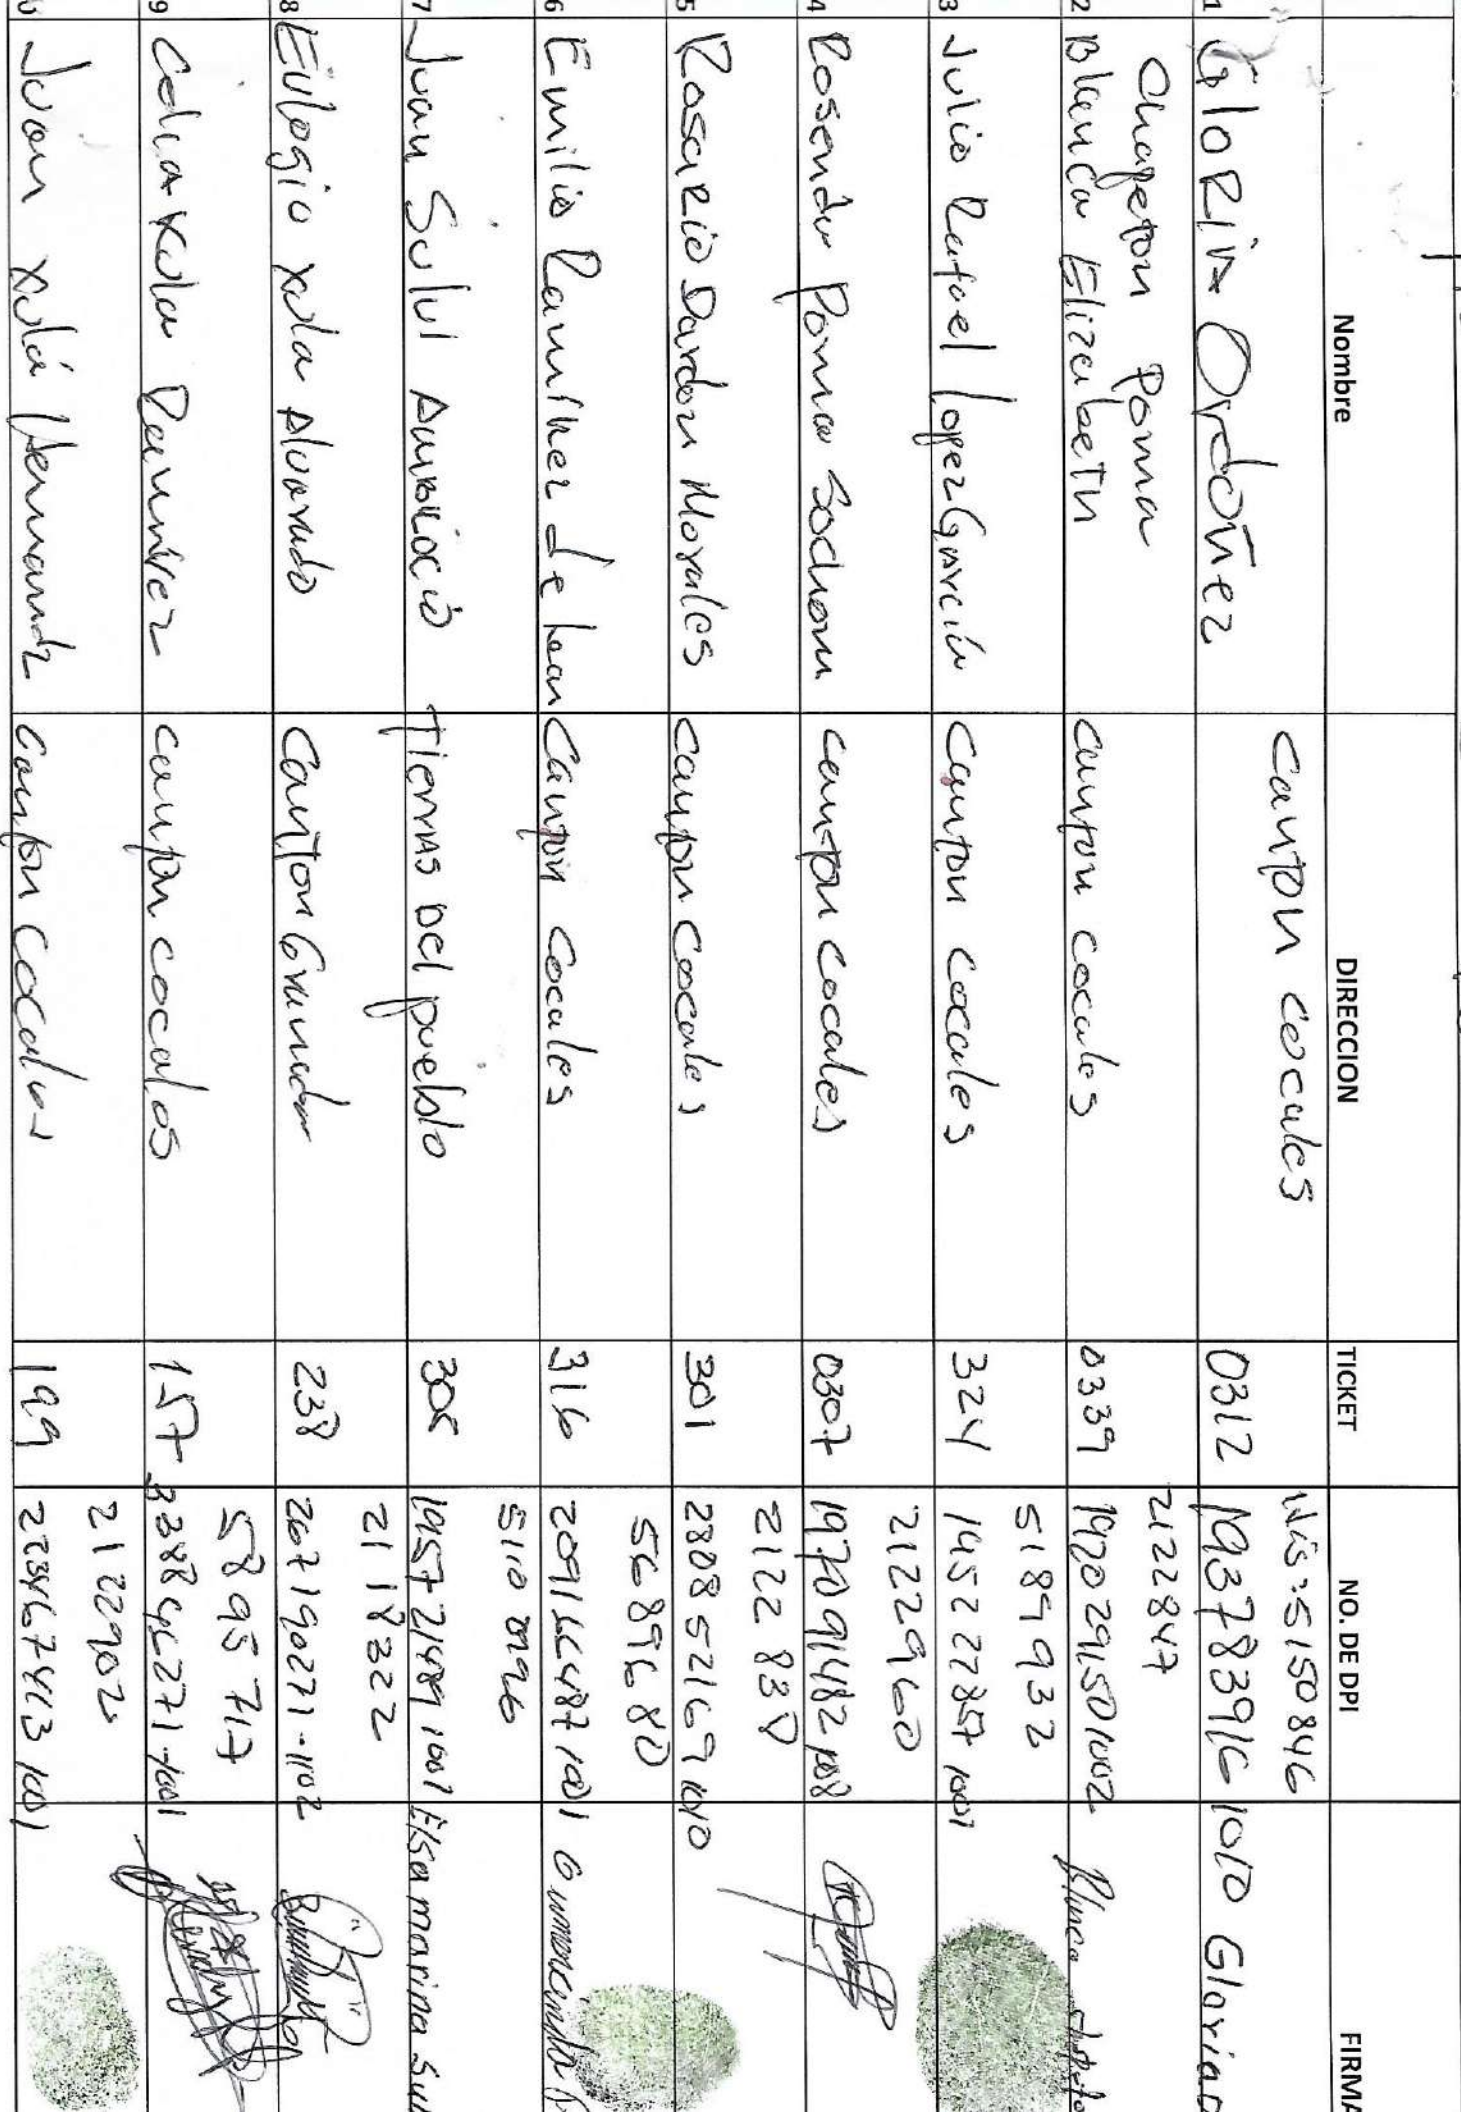 Nombre DIRECCION TICKET NO. DE DPI FIRMA
canton cocales Nis:5150846
1 GloRiA Ordoñez 0312 1937 83916 1010 Gloria
Chajeton Poma 2122847
2 Blanca Elizabeth canton cocales 0339 1920 29150 1002 Blanca
5189932
3 Julio Rafael lopez García canton cocales 324 1952 27857 1001
2122960
4 Rosendo Poma Sochom canton cocales 0307 1970 91482 1008
2122838
5 Rosario Dardon Morales canton cocales 301 2808 52169 1010
5689680
6 Emilio Ramirez de leon canton cocales 316 2091 66487 1001
5110
7 Juan Sulul Ambrocio Tierras Del pueblo 305 1957 21489 1001 Elsa marina
2118322
8 Eulogio xola Alvarado Canton Granada 238 2671 90271-1102
5895717
9 Celia Xola Ramirez canton cocales 157 3388 46271-1001
2122902
Juan xolá Hernandz canton cocales 199 2234 67463 1001